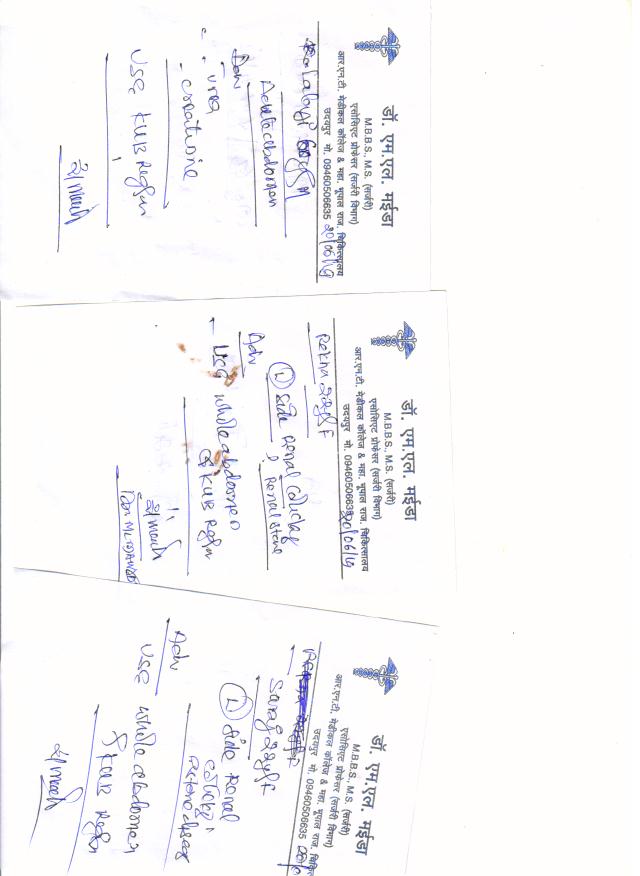 डॉ. एम.एल. मईडा
M.B.B.S., M.S. (सर्जरी)
एसोसिएट प्रोफेसर (सर्जरी विभाग)
आर.एन.टी. मेडीकल कॉलेज & महा. भूपाल राज. चिकित्सालय
उदयपुर मो. 09460506635 20/06/19
Acute abdomen
Adv
- urea
- creatinine
USG KUB Region
डॉ. एम.एल. मईडा
M.B.B.S., M.S. (सर्जरी)
एसोसिएट प्रोफेसर (सर्जरी विभाग)
आर.एन.टी. मेडीकल कॉलेज & महा. भूपाल राज. चिकित्सालय
उदयपुर मो. 09460506635 20/06/19
Rekha 22y/F
(L) side Renal colicky
? Renal stone
Adv
- USG whole abdomen
& KUB Region
डॉ. एम.एल. मईडा
M.B.B.S., M.S. (सर्जरी)
एसोसिएट प्रोफेसर (सर्जरी विभाग)
आर.एन.टी. मेडीकल कॉलेज & महा. भूपाल राज. चिकि
उदयपुर मो. 09460506635
Saroj 22y/F
(L) side Renal
colicky
Adv
USG whole abdomen
& KUB Region